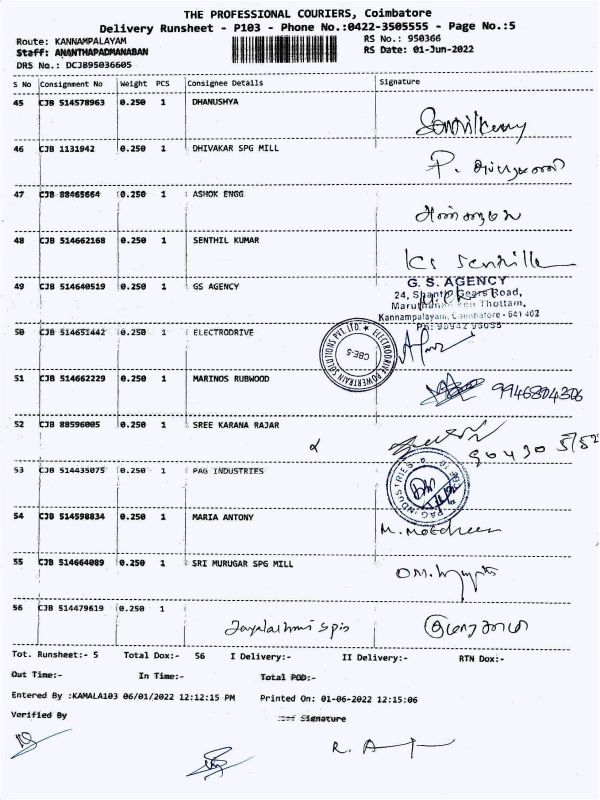 THE PROFESSIONAL COURIERS, Coimbatore
Delivery Runsheet - P103 - Phone No.:0422-3505555 - Page No.:5
Route: KANNAMPALAYAM
RS No.: 950366
Staff: ANANTHAPADMANABAN
RS Date: 01-Jun-2022
DRS No.: DCJB95036605
S No Consignment No Weight PCS Consignee Details Signature
45 CJB 514578963 0.250 1 DHANUSHYA
46 CJB 1131942 0.250 1 DHIVAKAR SPG MILL
P.
47 CJB 88465664 0.250 1 ASHOK ENGG
48 CJB 514662168 0.250 1 SENTHIL KUMAR
KS Senthil
49 CJB 514640519 0.250 1 GS AGENCY
G. S. AGENCY
24, Shanthi Gears Road,
Thottam,
Kannampalayam, Coimbatore - 641 402
Ph: 98942 95055
50 CJB 514651442 0.250 1 ELECTRODRIVE
ELECTRODRIVE POWERTRAIN SOLUTIONS PVT. LTD. ★
CBE-5
51 CJB 514662229 0.250 1 MARINOS RUBWOOD
9946804306
52 CJB 88596005 0.250 1 SREE KARANA RAJAR
53 CJB 514435075 0.250 1 PAG INDUSTRIES
PAG INDUSTRIES
54 CJB 514598834 0.250 1 MARIA ANTONY
55 CJB 514664089 0.250 1 SRI MURUGAR SPG MILL
56 CJB 514479619 0.250 1
Tot. Runsheet:- 5 Total Dox:- 56 I Delivery:- II Delivery:- RTN Dox:-
Out Time:- In Time:- Total POD:-
Entered By :KAMALA103 06/01/2022 12:12:15 PM Printed On: 01-06-2022 12:15:06
Verified By
Signature